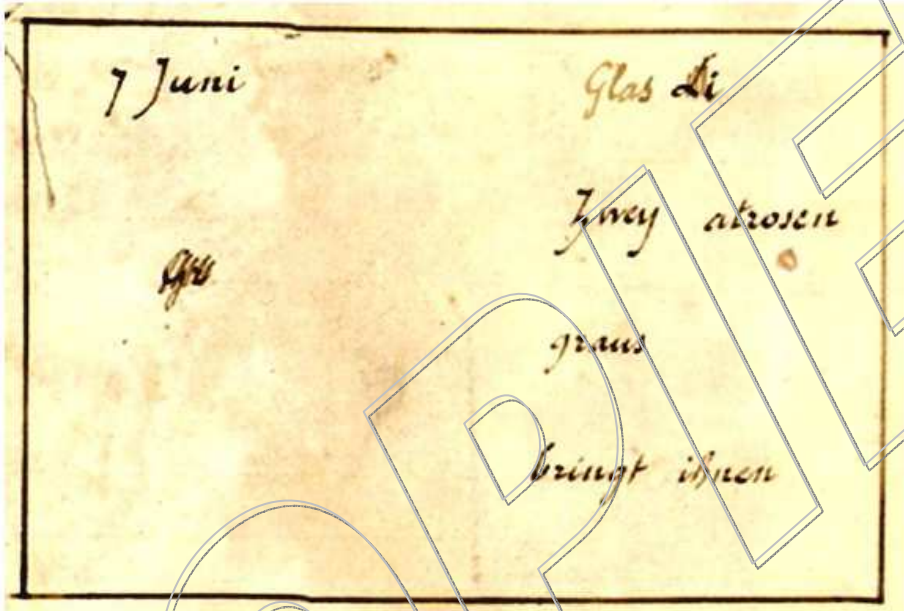 7 Juni Glas Di
Zwey atrosen
graus
bringt ihnen